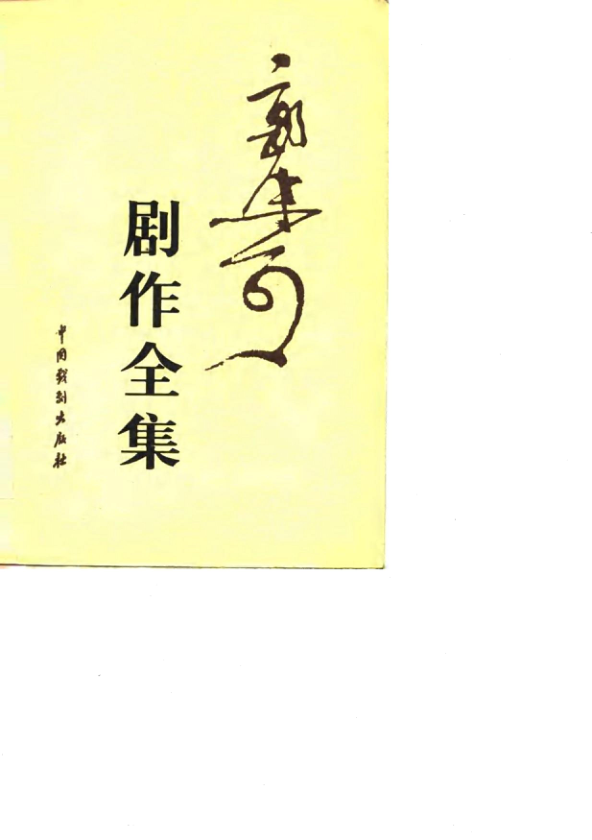 郭沫若
剧作全集
中国戏剧出版社